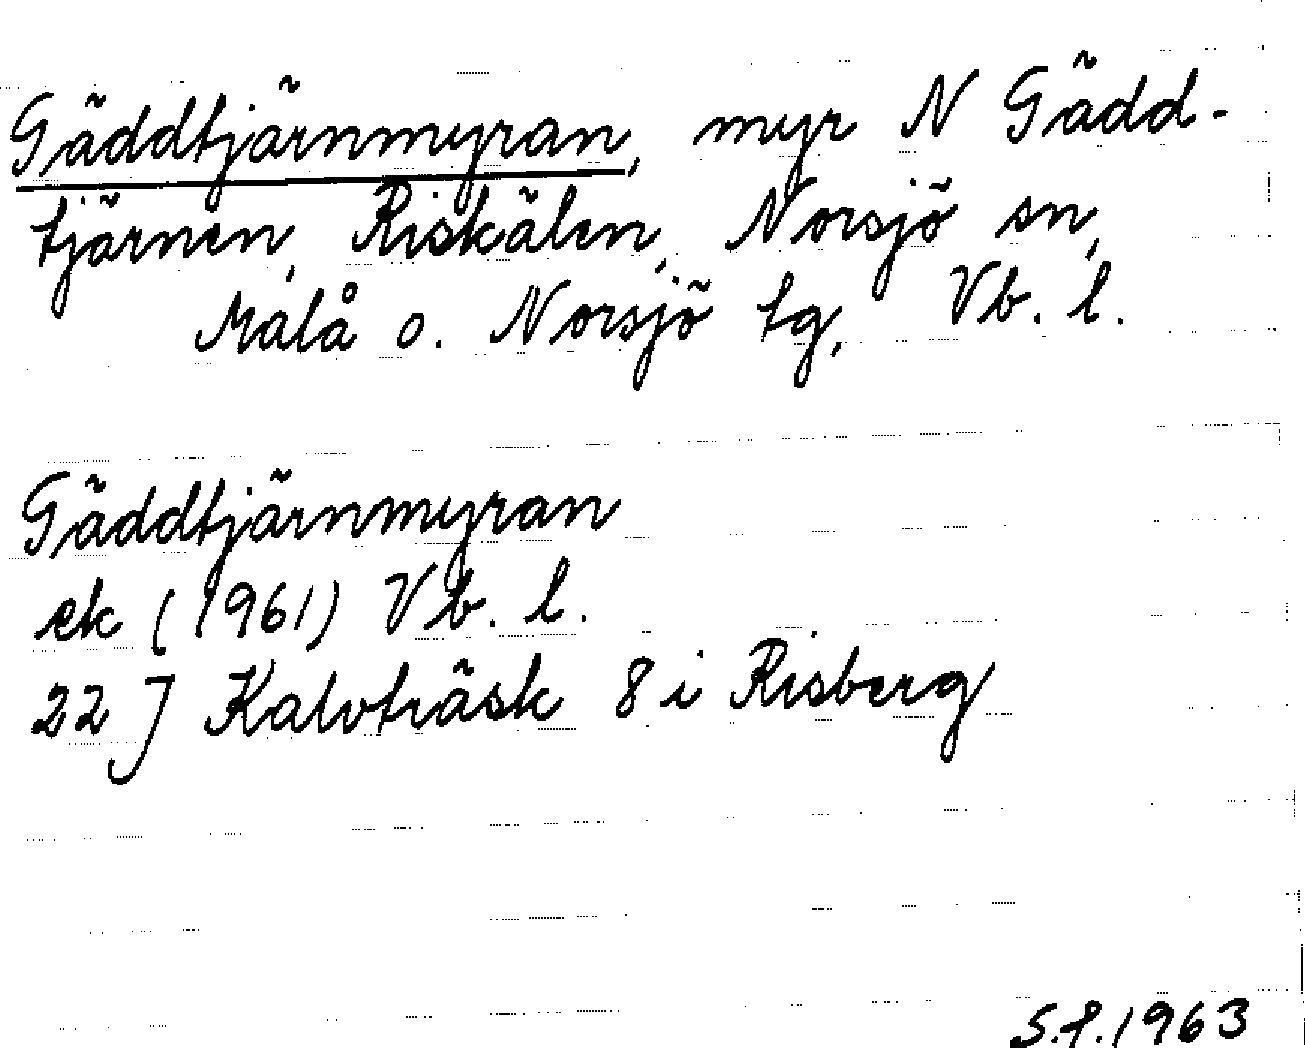 Gäddtjärnmyran, myr N Gädd-
tjärnen, Riskälen, Norsjö sn,
Malå o. Norsjö tg, Vb. l.
Gäddtjärnmyran
ek (1961) Vb. l.
22 J Kalvträsk 8 i Risberg
S.P. 1963